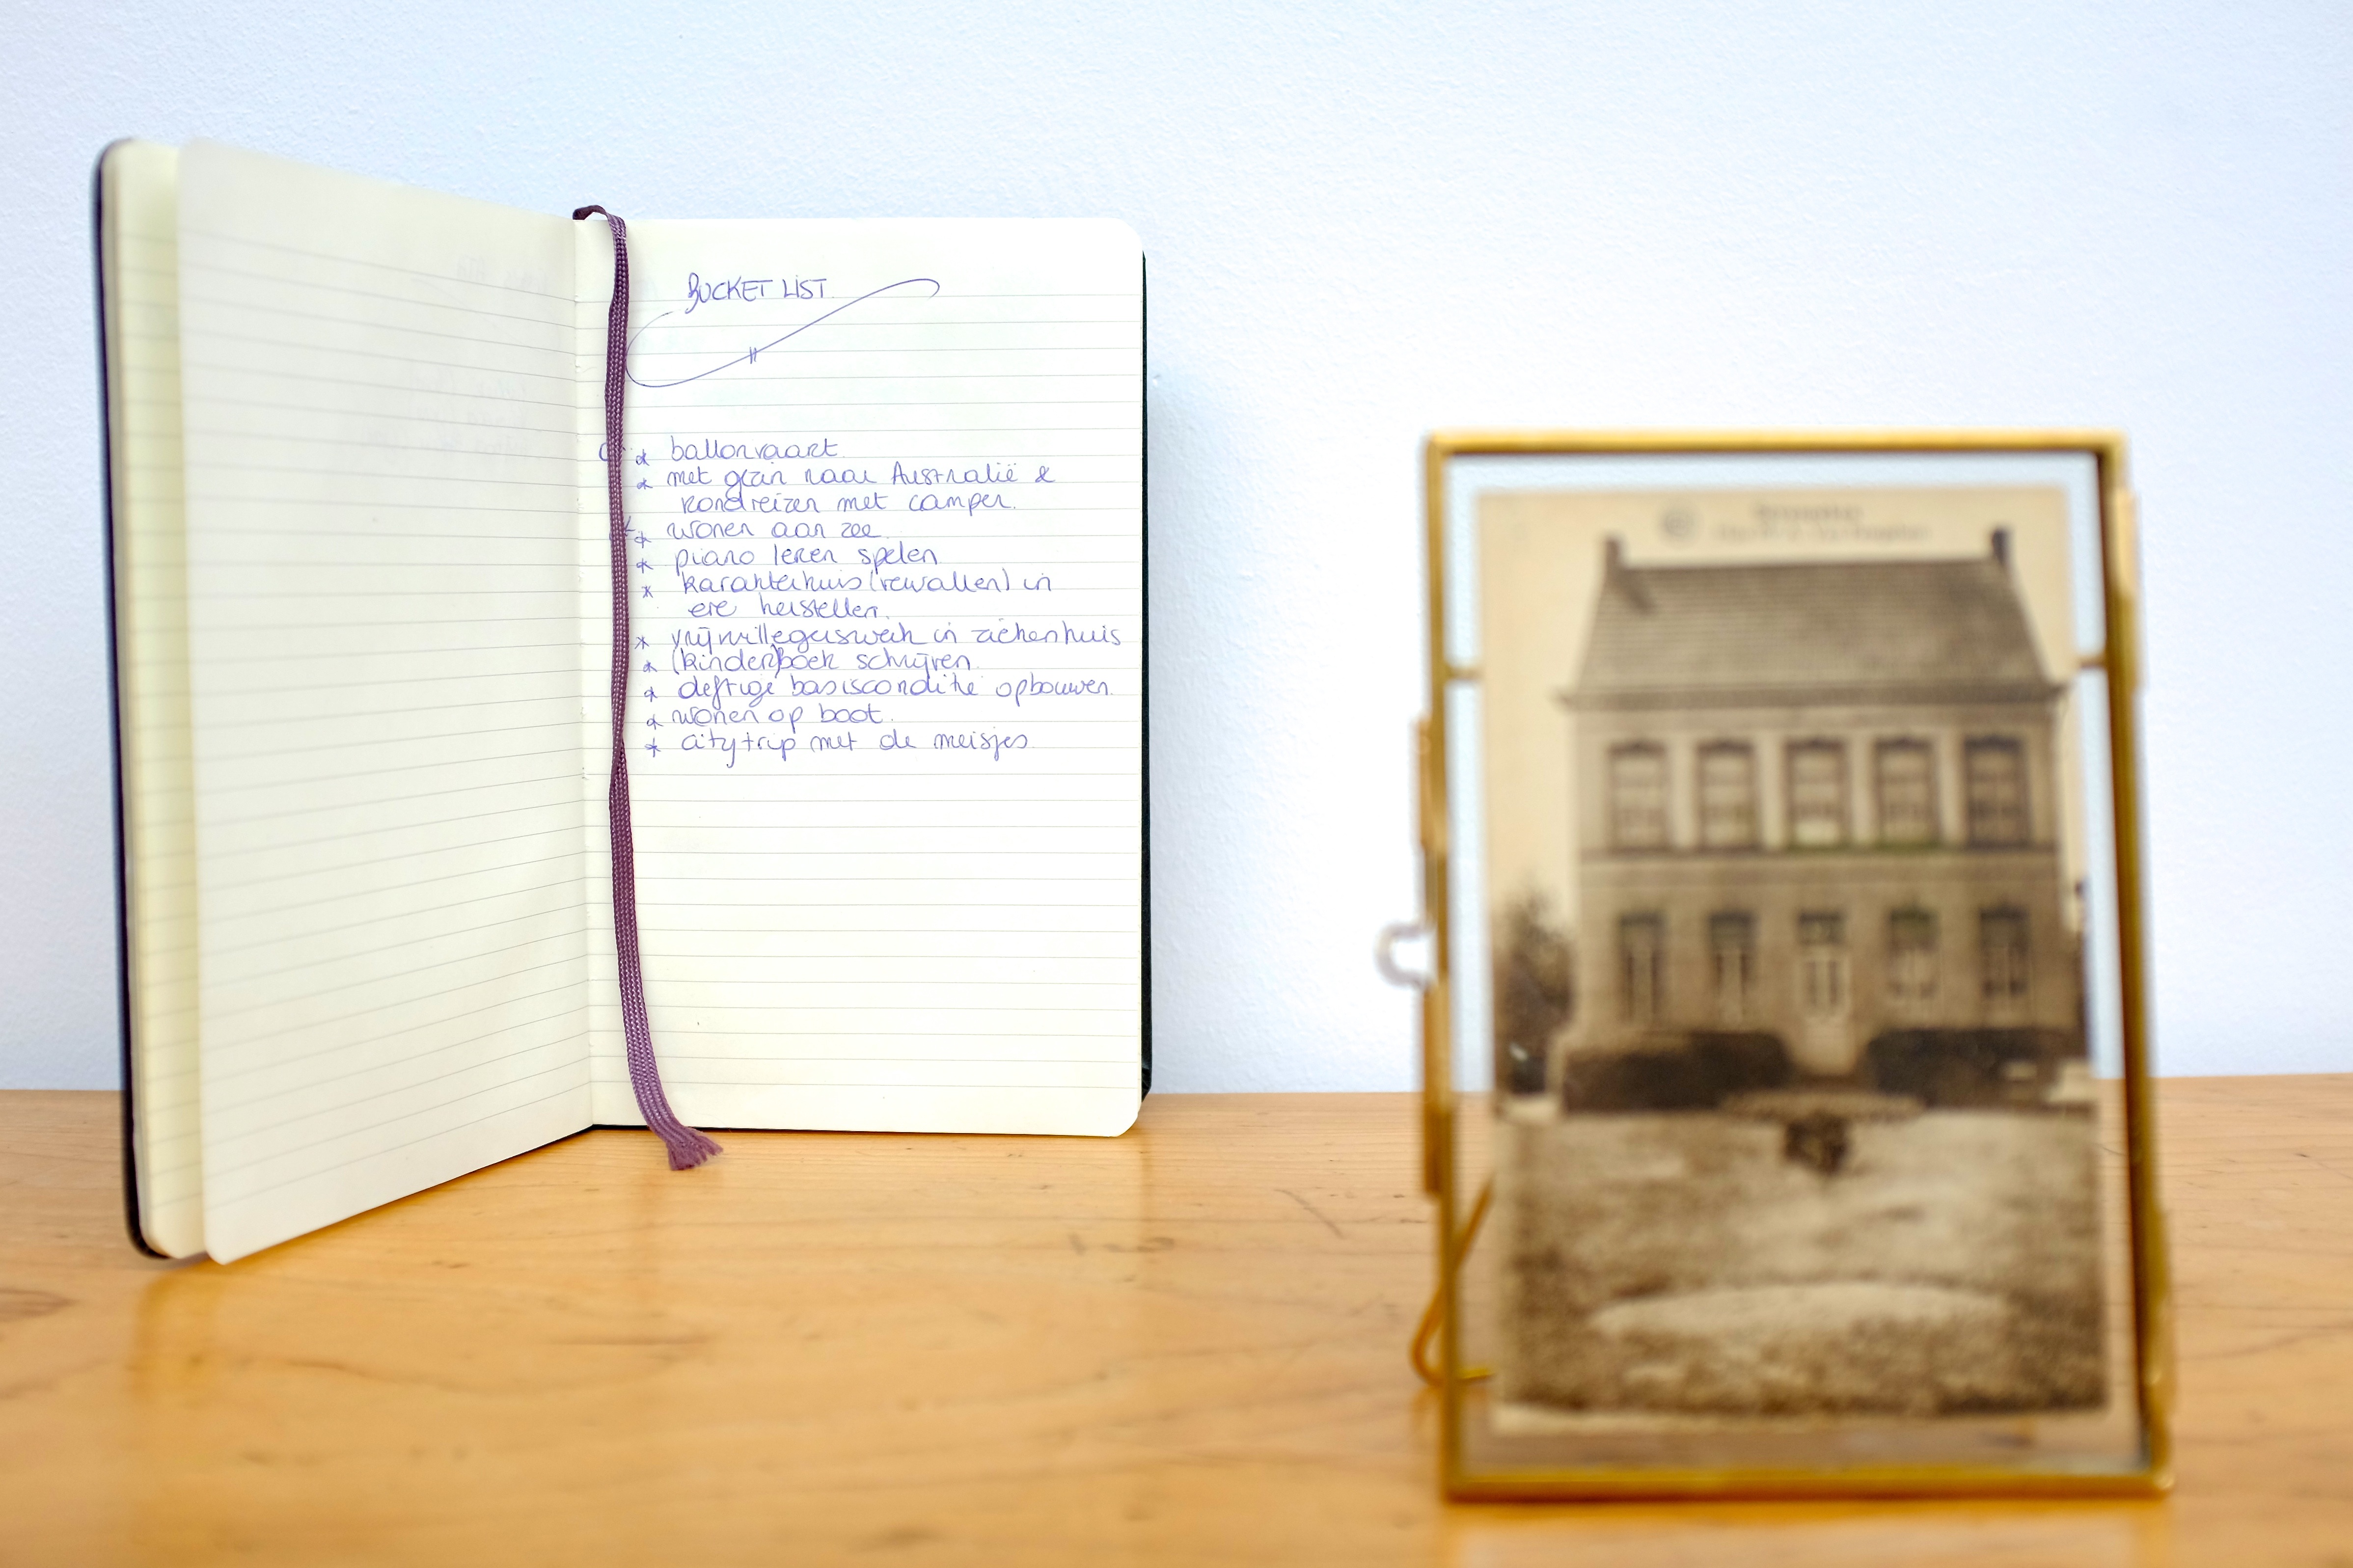 BUCKET LIST
* ballonvaart
* met gezin naar Australië &
rondreizen met camper.
* wonen aan zee
* piano leren spelen
* karakterhuis (vervallen) in
ere herstellen.
* vrijwilligerswerk in ziekenhuis
* (kinder)boek schrijven.
* deftige basisconditie opbouwen.
* wonen op boot.
* citytrip met de meisjes